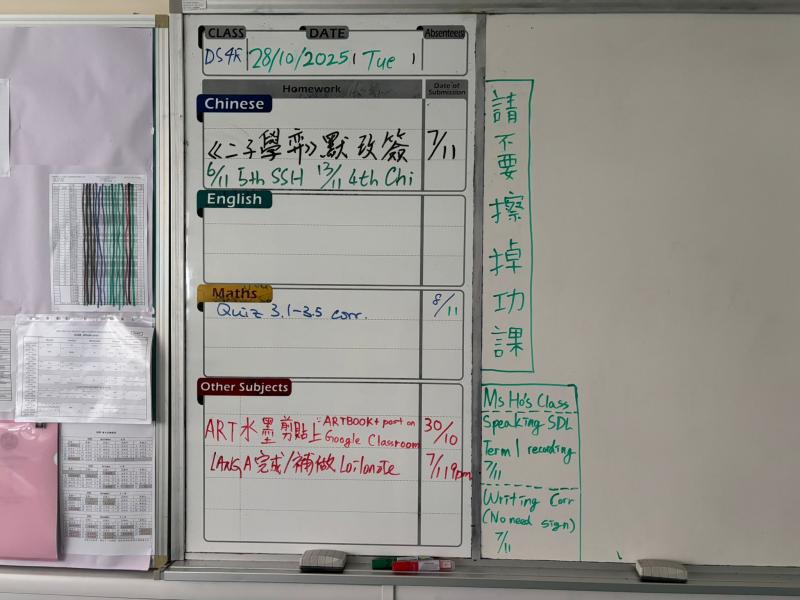 CLASS DATE Absentees
DS4K 28/10/2025, Tue
Homework Date of Submission
Chinese
《二子學弈》默改簽 7/11
6/11 5th SSH 13/11 4th Chi
English
Maths
Quiz 3.1-3.5 corr. 8/11
Other Subjects
ART 水墨剪貼上 ARTBOOK + post on Google Classroom 30/10
完成/補做 Loilonote 7/11 9pm
請不要擦掉功課
Ms Ho's Class
Speaking SDL
Term 1 recording
7/11
Writing Corr
(No need sign)
7/11